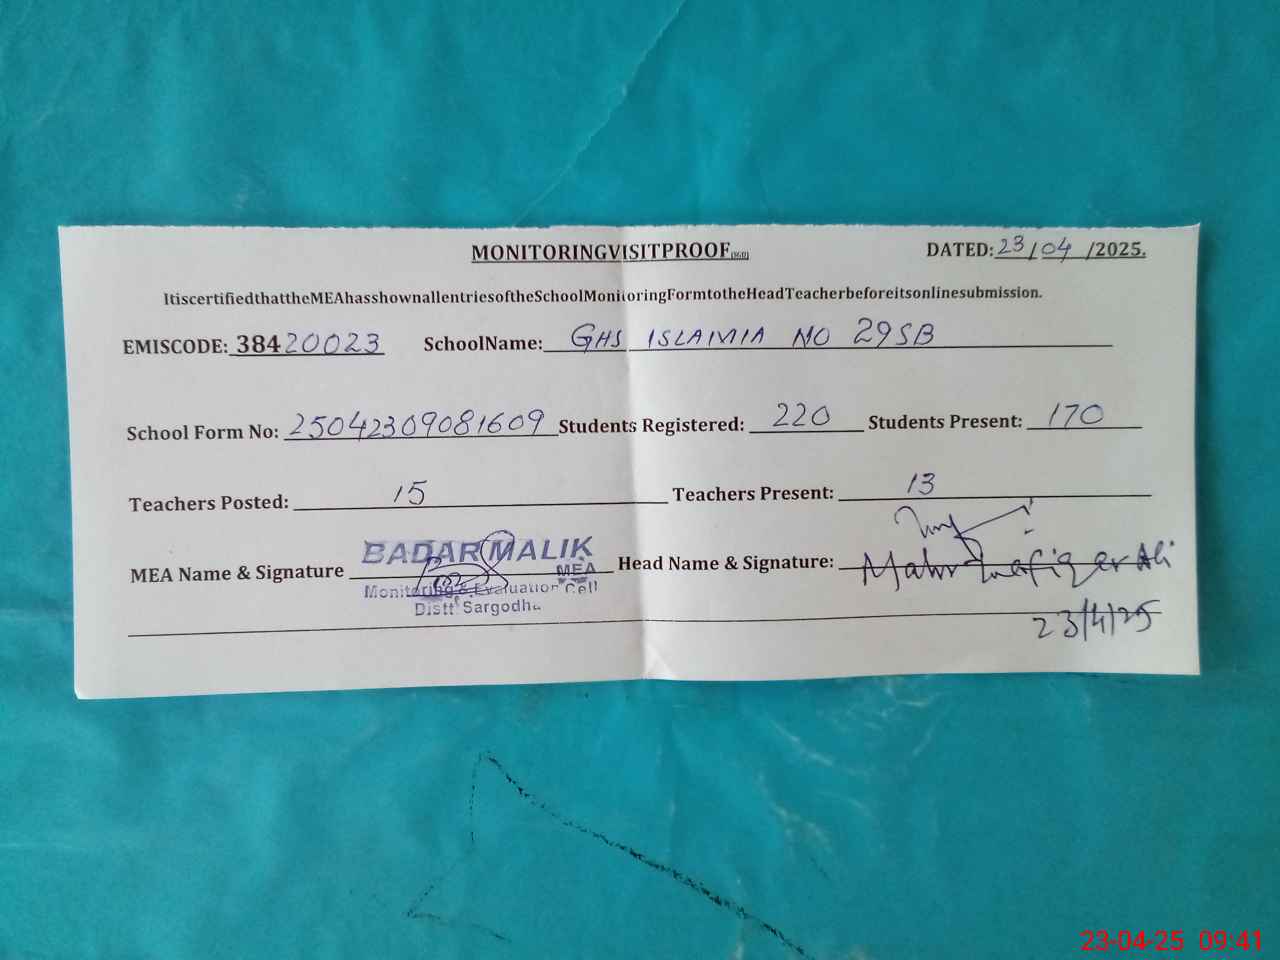 MONITORINGVISITPROOF(SGD) DATED: 23/04/2025.
ItiscertifiedthattheMEAhasshownallentriesoftheSchoolMonitoringFormtotheHeadTeacherbeforeitsonlinesubmission.
EMISCODE: 38420023 SchoolName: GHS ISLAMIA NO 29SB
School Form No: 25042309081609 Students Registered: 220 Students Present: 170
Teachers Posted: 15 Teachers Present: 13
MEA Name & Signature BADAR MALIK Head Name & Signature: Mahr Ali
MEA
Monitoring & Evaluation Cell
Distt Sargodha
23/4/25
23-04-25 09:41